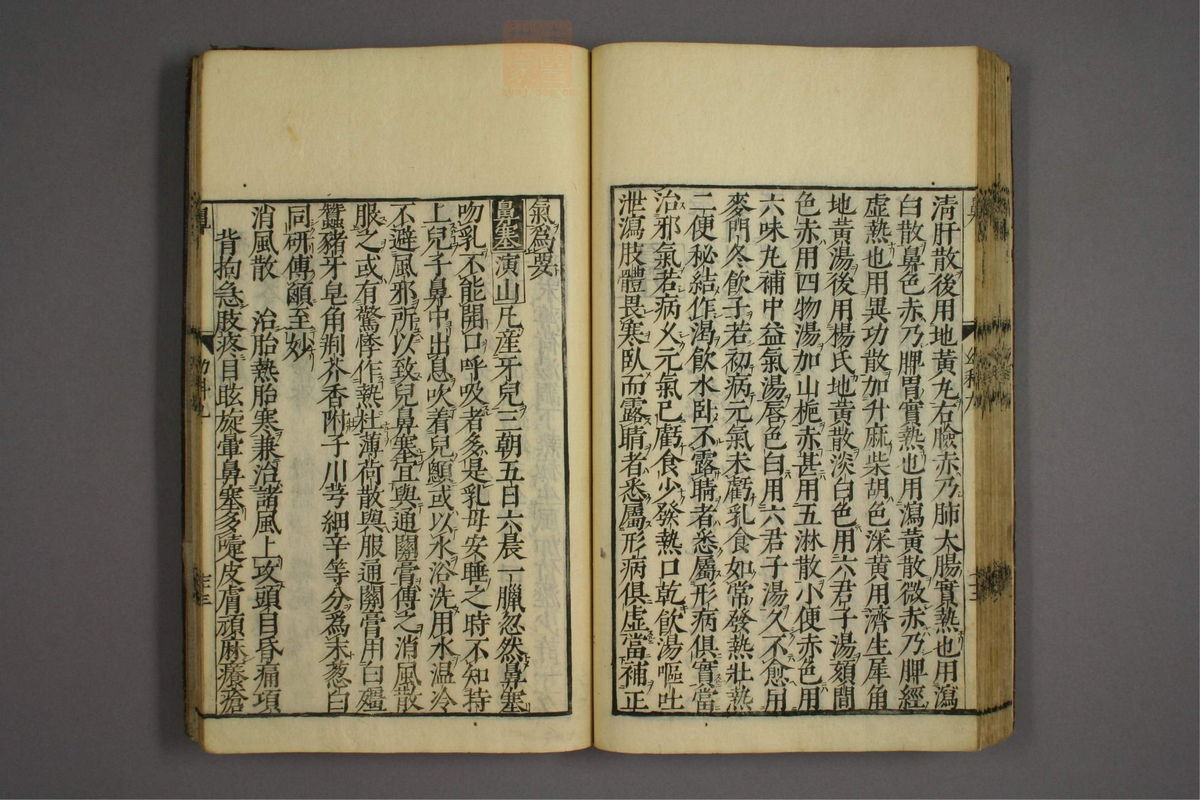 清肝散後用地黃丸右臉赤乃肺大腸實熱也用瀉
白散鼻色赤乃脾胃實熱也用瀉黃散微赤乃脾經
虛熱也用異功散加升麻柴胡色深黃用濟生犀角
地黃湯後用楊氏地黃散淡白色用六君子湯頦間
色赤用四物湯加山梔赤甚用五淋散小便赤色用
六味丸補中益氣湯唇色白用六君子湯久不愈用
麥門冬飲子若初病元氣未虧乳食如常發熱壯熱
二便秘結作渴飲水臥不露睛者悉屬形病俱實當
治邪氣若病久元氣已虧食少發熱口乾飲湯嘔吐
泄瀉肢體畏寒臥而露睛者悉屬形病俱虛當補正
氣為要
鼻塞 演山 凡產牙兒三朝五日六晨一臘忽然鼻塞
吻乳不能開口呼吸者多是乳母安睡之時不知持
上兒子鼻中出息吹着兒顖或以水浴洗用水温冷
不避風邪所以致兒鼻塞宜與通關膏傅之消風散
服之或有驚悸作熱杜薄荷散與服通關膏用白殭
蠶豬牙皂角荆芥香附子川芎細辛等分為末葱白
同研傅顖至妙
消風散 治胎熱胎寒兼治諸風上攻頭目昏痛項
背拘急肢疼目眩旋暈鼻塞多嚏皮膚頑麻癢瘡
鼻
幼科九
三三